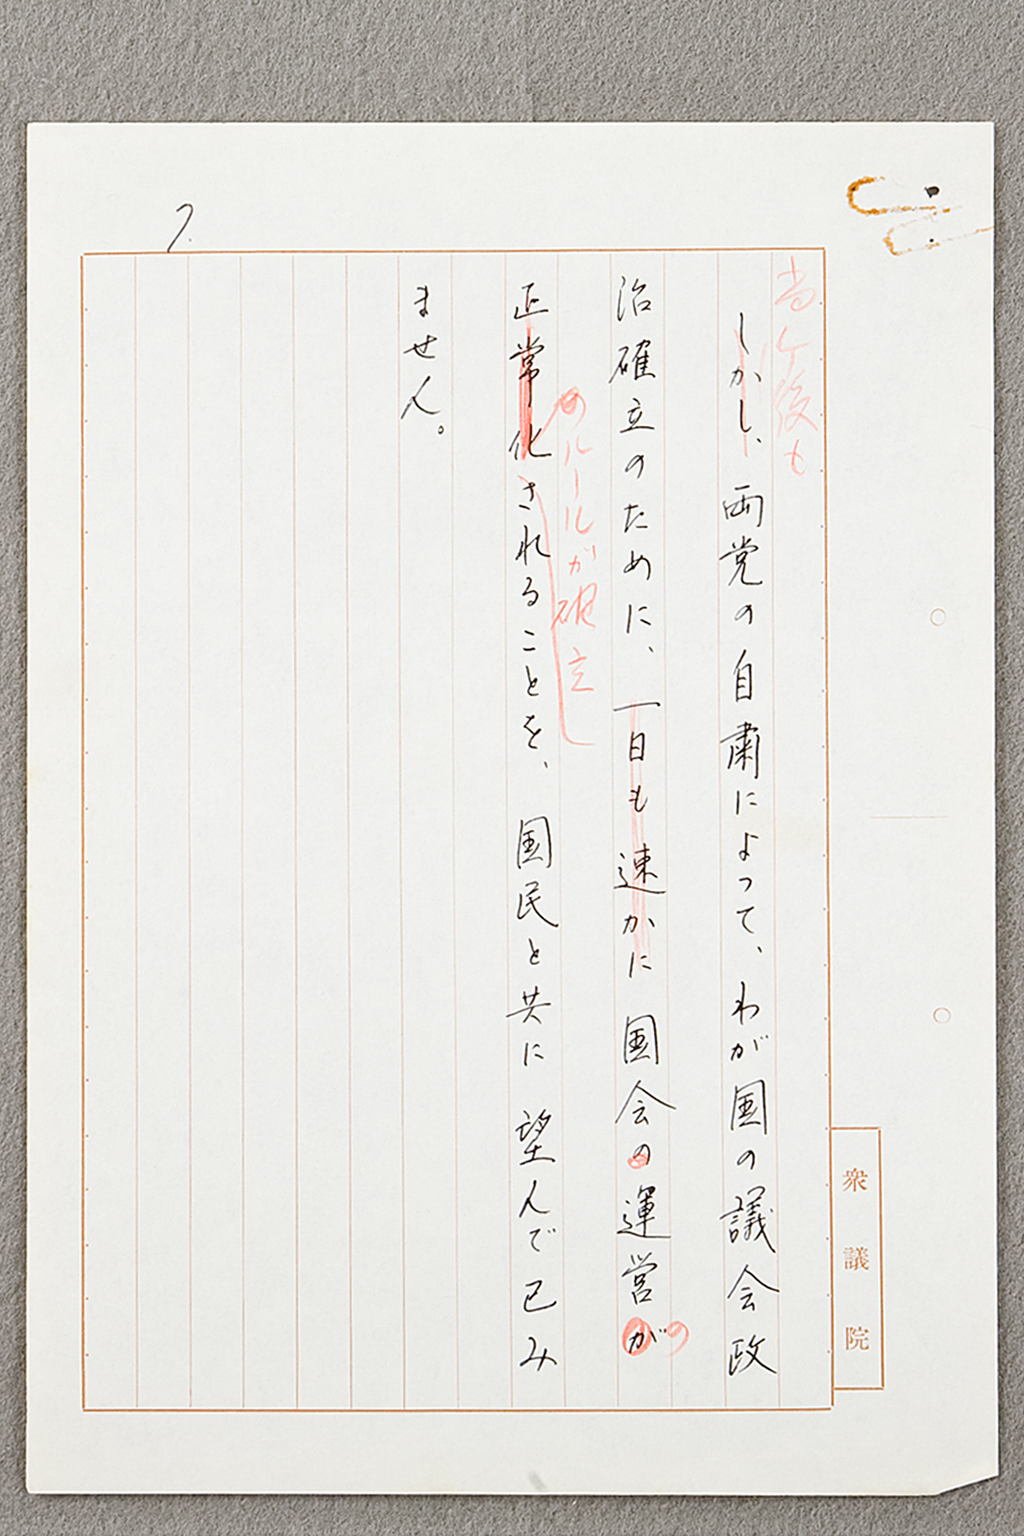 衆議院
7.
も
しかし、両党の自粛によって、わが国の議会政
治確立のために、一日も速かに国会の運営が
の
のルールが確立
正常化されることを、国民と共に望んで已み
ません。